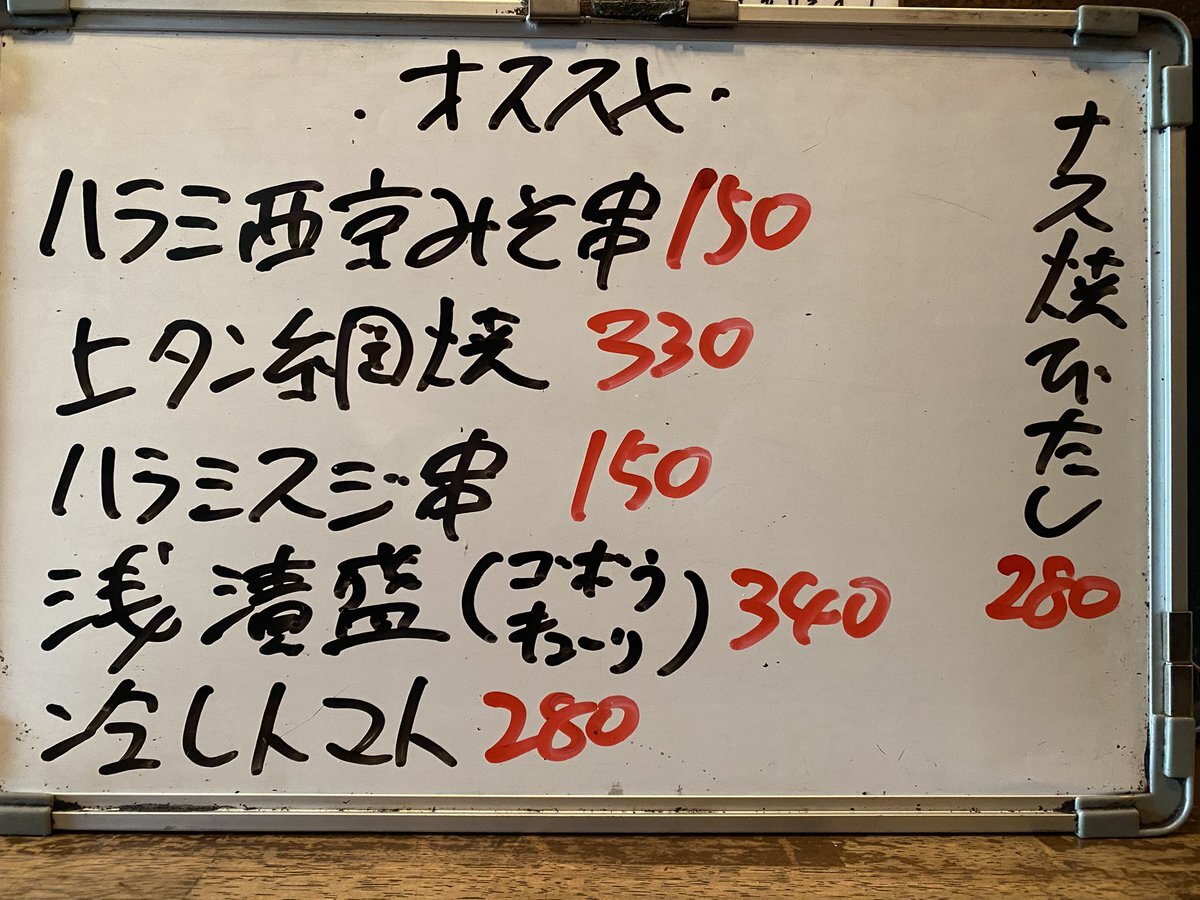 ・オススメ・
ハラミ西京みそ串 150
上タン網焼 330
ハラミスジ串 150
浅漬盛(ゴボウ キューリ) 340
冷しトマト 280
ナス焼びたし
280